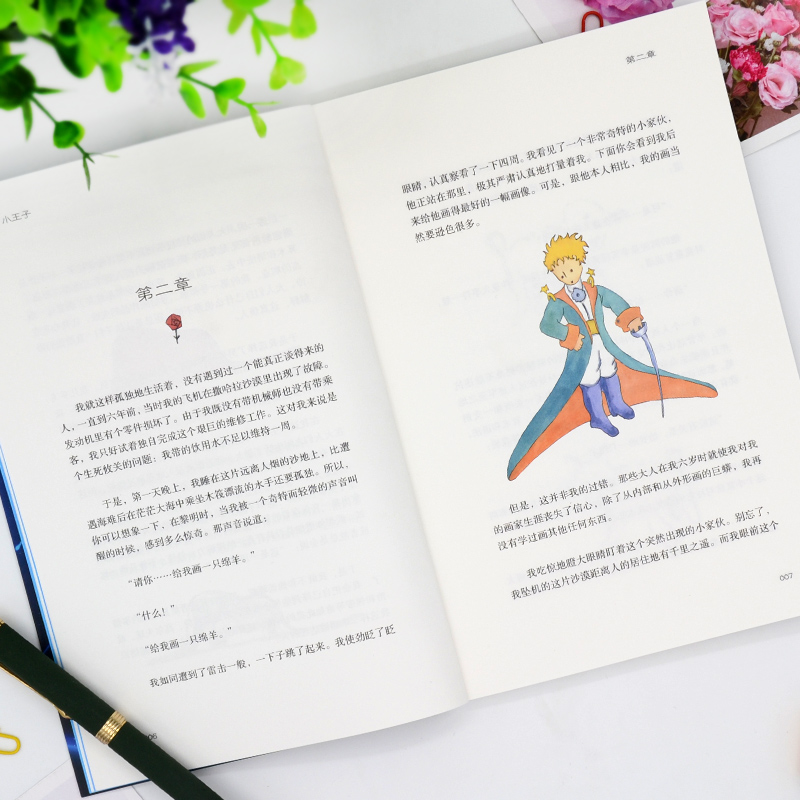 小王子
第二章
我就这样孤独地生活着，没有遇到过一个能真正谈得来的
人，一直到六年前，当时我的飞机在撒哈拉沙漠里出现了故障。
发动机里有个零件损坏了。由于我既没有带机械师也没有带乘
客，我只好试着独自完成这个艰巨的维修工作。这对我来说是
个生死攸关的问题：我带的饮用水不足以维持一周。
于是，第一天晚上，我睡在这片远离人烟的沙地上，比遭
遇海难后在茫茫大海中乘坐木筏漂流的水手还要孤独。所以，
你可以想象一下，在黎明时，当我被一个奇特而轻微的声音叫
醒的时候，感到多么惊奇。那声音说道：
“请你……给我画一只绵羊。”
“什么！”
“给我画一只绵羊。”
我如同遭到了雷击一般，一下子跳了起来。我使劲眨了眨
06
第二章
眼睛，认真察看了一下四周。我看见了一个非常奇特的小家伙，
他正站在那里，极其严肃认真地打量着我。下面你会看到我后
来给他画得最好的一幅画像。可是，跟他本人相比，我的画当
然要逊色很多。
但是，这并非我的过错。那些大人在我六岁时就使我对我
的画家生涯丧失了信心，除了从内部和从外形画的巨蟒，我再
没有学过画其他任何东西。
我吃惊地瞪大眼睛盯着这个突然出现的小家伙。别忘了，
我坠机的这片沙漠距离人的居住地有千里之遥。而我眼前这个
007